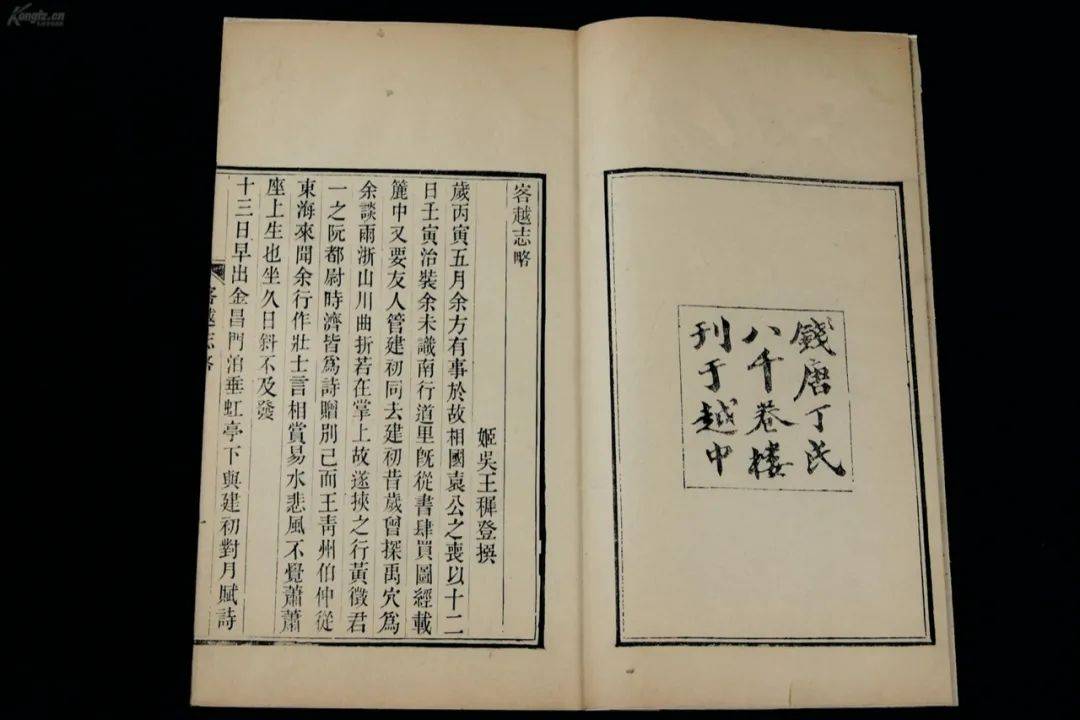 錢唐丁氏
八千卷樓
刊于越中
客越志略
姬吳王穉登撰
歲丙寅五月余方有事於故相國袁公之喪以十二
日壬寅治裝余未識南行道里旣從書肆買圖經載
簏中又要友人管建初同去建初昔歲曾探禹穴爲
余談兩浙山川曲折若在掌上故遂挾之行黃徵君
一之阮都尉時濟皆爲詩贈別已而王靑州伯仲從
東海來聞余行作壯士言相賞易水悲風不覺蕭蕭
座上生也坐久日斜不及發
十三日早出金昌門泊垂虹亭下與建初對月賦詩
客越志略
Kongfz.cn